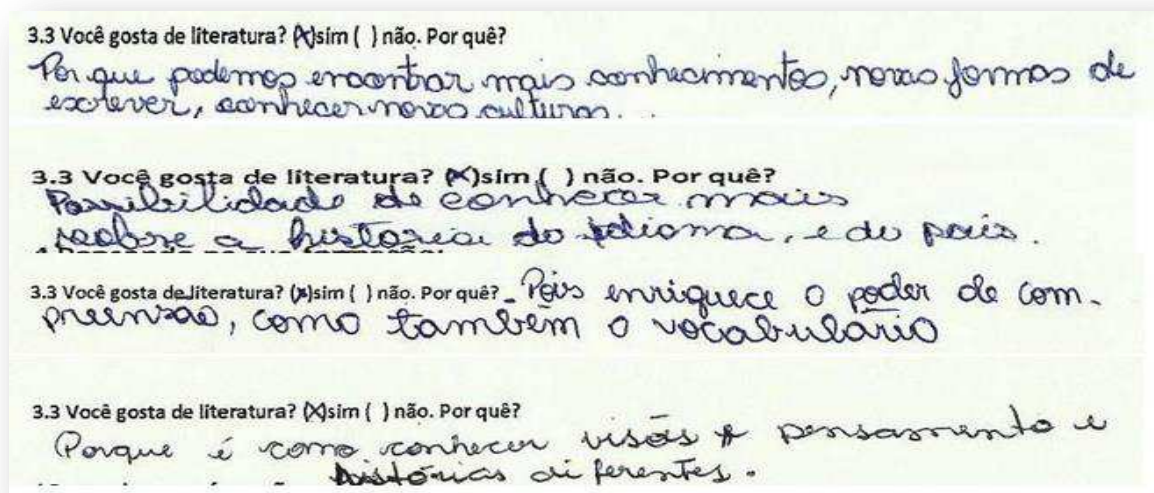 3.3 Você gosta de literatura? (X)sim ( ) não. Por quê?
Por que podemos encontrar mais conhecimentos, novas formas de
escrever, conhecer novas culturas...
3.3 Você gosta de literatura? (X)sim ( ) não. Por quê?
Possibilidade de conhecer mais
sobre a historia do idioma, e do pais.
3.3 Você gosta de literatura? (x)sim ( ) não. Por quê? Pois enriquece o poder de com-
preensão, como também o vocabulário
3.3 Você gosta de literatura? (X)sim ( ) não. Por quê?
Porque é como conhecer visões pensamento e
histórias diferentes.